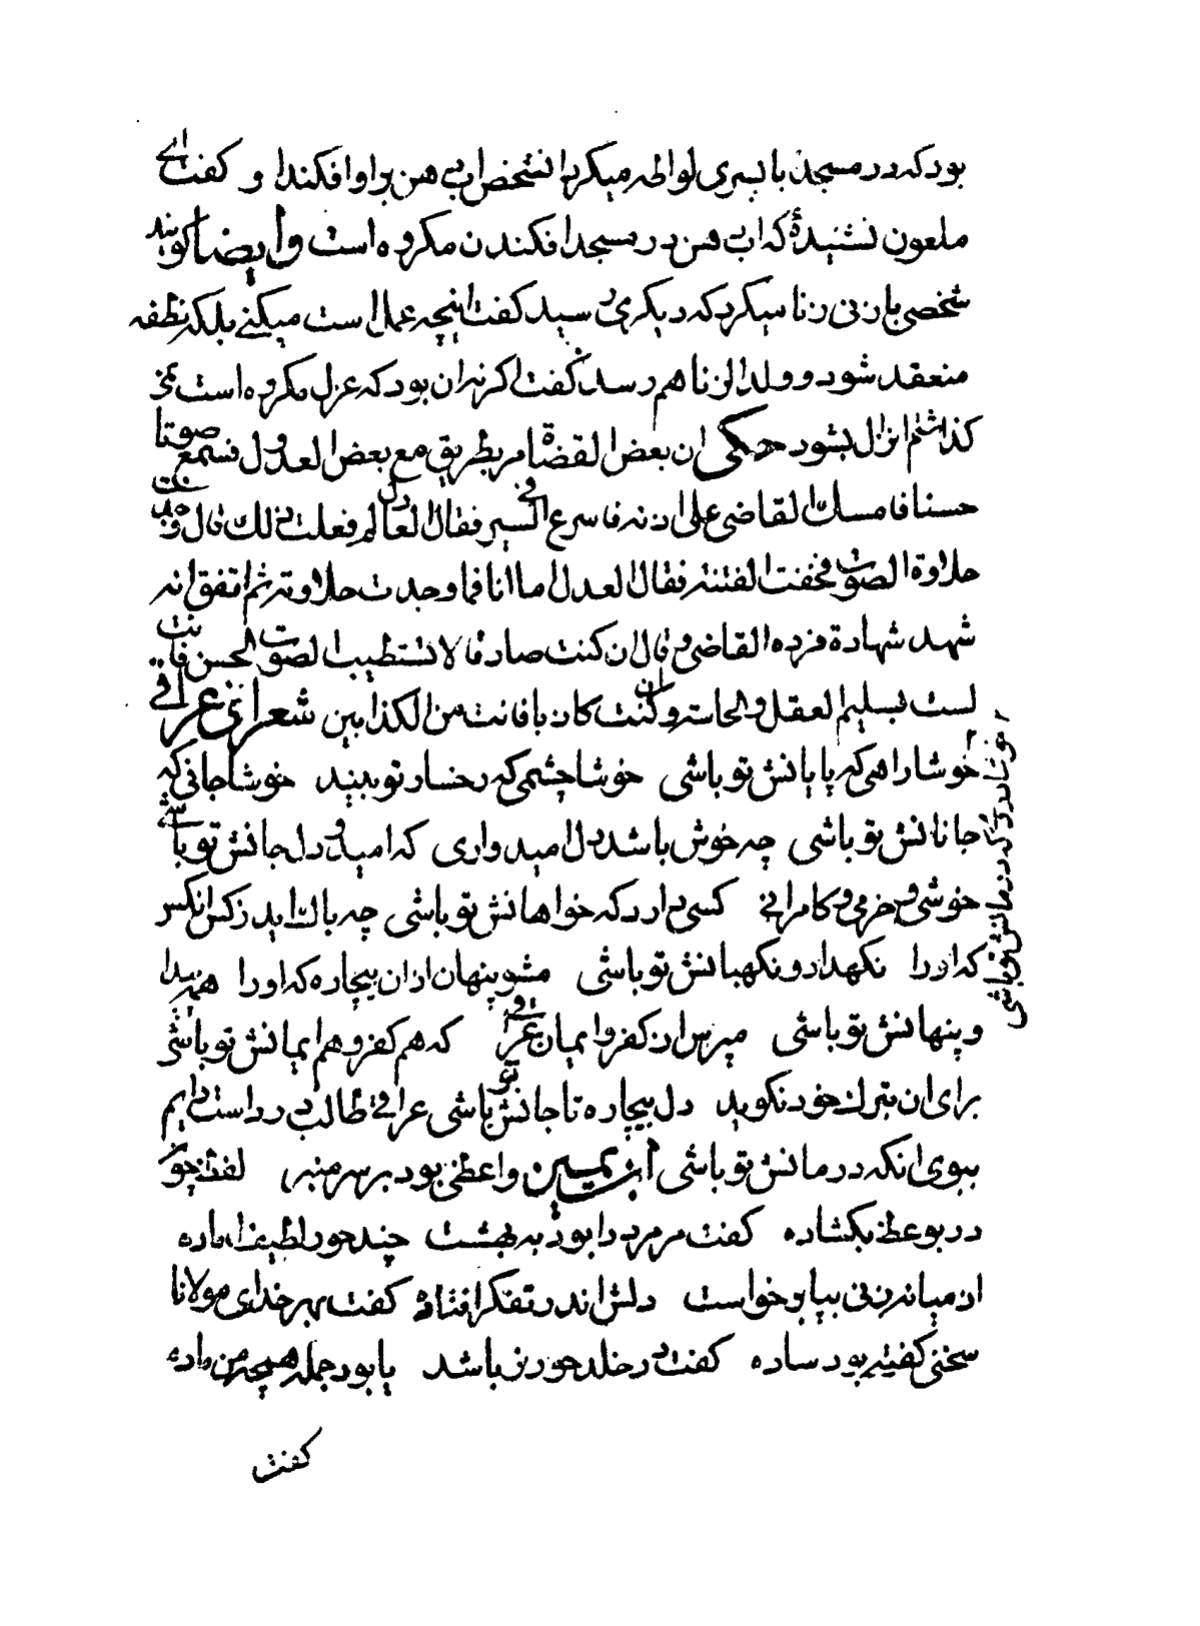 بود که در مسجد با پسری لواطه میکرد ان شخص اب دهن بر او افکند و کفت ای
ملعون نشنیدهٔ که اب دهن در مسجد افکندن مکروه است وایضا کویند
شخصی با زنی زنا میکرد که دیکری رسید کفت اینچه عمل است میکنے بلکه نطفه
منعقد شود و ولد الزنا هم رسد کفت اکر نه ان بود که عزل مکروه است نمی
کذاشتم انزال بشود حکی ان بعض القضاة مر بطریق مع بعض العدول فسمع صوتا
حسنا فامسک القاضی علی اذنه فاسرع فی السیر فقال العدل لم فعلت ذلک قال وجدت
حلاوة الصوت فخفت الفتنه فقال العدل اما انا فما وجدت حلاوته ثم اتفق انه
شهد شهادة فرده القاضی و قال ان کنت صادقا لا تستطیب الصوت الحسن فانت
لست بسلیم العقل و الحاسه و ان کنت کاذبا فانت من الکذابین شعرانی عراقی
خوشا راهی که پایانش تو باشی خوشا چشمی که رخسار تو بیند خوشا جانی که
جانانش تو باشی چه خوش باشد دل امیدواری که امید دل و جانش تو باشے
خوشی و خرمی و کامرانی کسی دارد که خواهانش تو باشی چه باک اید ز کس انکس
که او را نکهدار و نکهبانش تو باشی مشو پنهان از ان بیچاره که او را همه پیدا
و پنهانش تو باشی مپرس از کفر و ایمان عراقی که هم کفر و هم ایمانش تو باشی
برای ان بترک خود نکوید دل بیچاره تا جانش تو باشی عراقی طالب درد است دایم
ببوی انکه درمانش تو باشی ابن یمین واعظی بود بر سر منبر لفظ چون
در بوعظ بکشاده کفت مر مرد را بود به بهشت چند حور لطیف اماده
از میانه زنی بپا برخواست دلش اندر تفکر افتاده کفت بهر خدای مولانا
سخنی کفتیه بود ساده کفت در خلد حور نر باشد یا بود جمله همچه من ماده
کفت